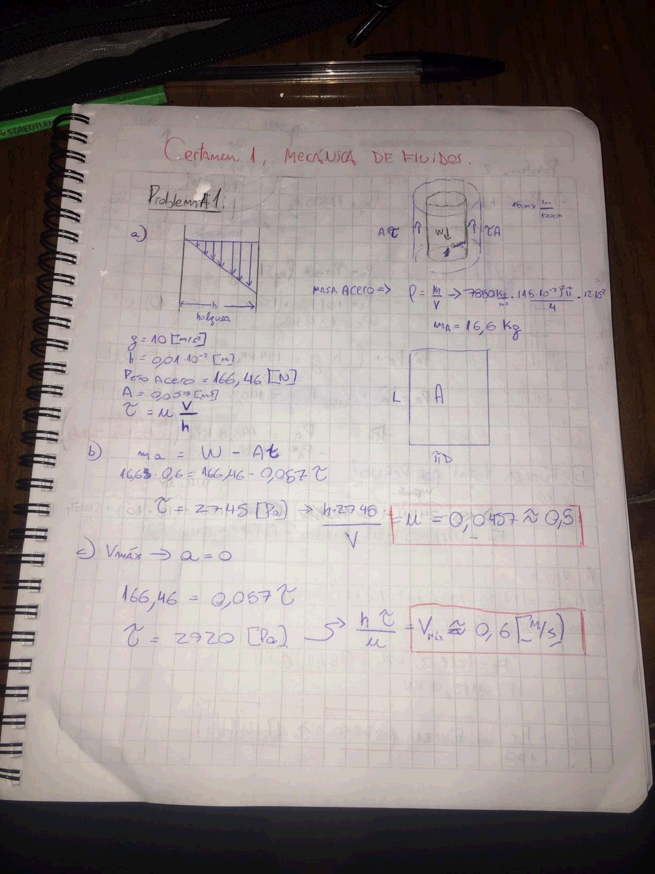 STAEDTLER
Certamen 1, MECÁNICA DE FLUIDOS.
Problema A1:
a)
h
holgura
Aτ
τA
MASA ACERO => ρ = m/V → 7850 Kg/m³ ·
m_A = 16,6 Kg
g = 10 [m/s²]
h = 0,01·10⁻² [m]
Peso Acero = 166,46 [N]
A = 0,057 [m²]
τ = μ V/h
L
A
πD
b) ma = W - Aτ
· 0,6 = 166,46 - 0,057 τ
τ = 2745 [Pa] → h·2745/V = μ = 0,0457 ≈ 0,5
c) Vmáx → a = 0
166,46 = 0,057 τ
τ = 2920 [Pa] → h τ/μ = Vmáx ≈ 0,6 [m/s]